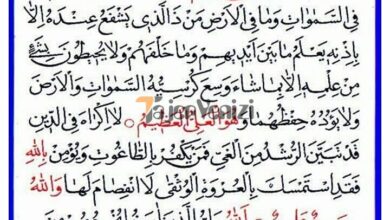 فِي السَّمَوَاتِ وَمَا فِي الْأَرْضِ مَنْ ذَا الَّذِي يَشْفَعُ عِنْدَهُ إِلَّا
بِإِذْنِهِ يَعْلَمُ مَا بَيْنَ أَيْدِيهِمْ وَمَا خَلْفَهُمْ وَلَا يُحِيطُونَ بِشَيْءٍ
مِنْ عِلْمِهِ إِلَّا بِمَا شَاءَ وَسِعَ كُرْسِيُّهُ السَّمَوَاتِ وَالْأَرْضَ
وَلَا يَؤُدُهُ حِفْظُهُمَا وَهُوَ الْعَلِيُّ الْعَظِيمُ لَا إِكْرَاهَ فِي الدِّينِ
قَدْ تَبَيَّنَ الرُّشْدُ مِنَ الْغَيِّ فَمَنْ يَكْفُرْ بِالطَّاغُوتِ وَيُؤْمِنْ بِاللَّهِ
فَقَدِ اسْتَمْسَكَ بِالْعُرْوَةِ الْوُثْقَى لَا انْفِصَامَ لَهَا وَاللَّهُ